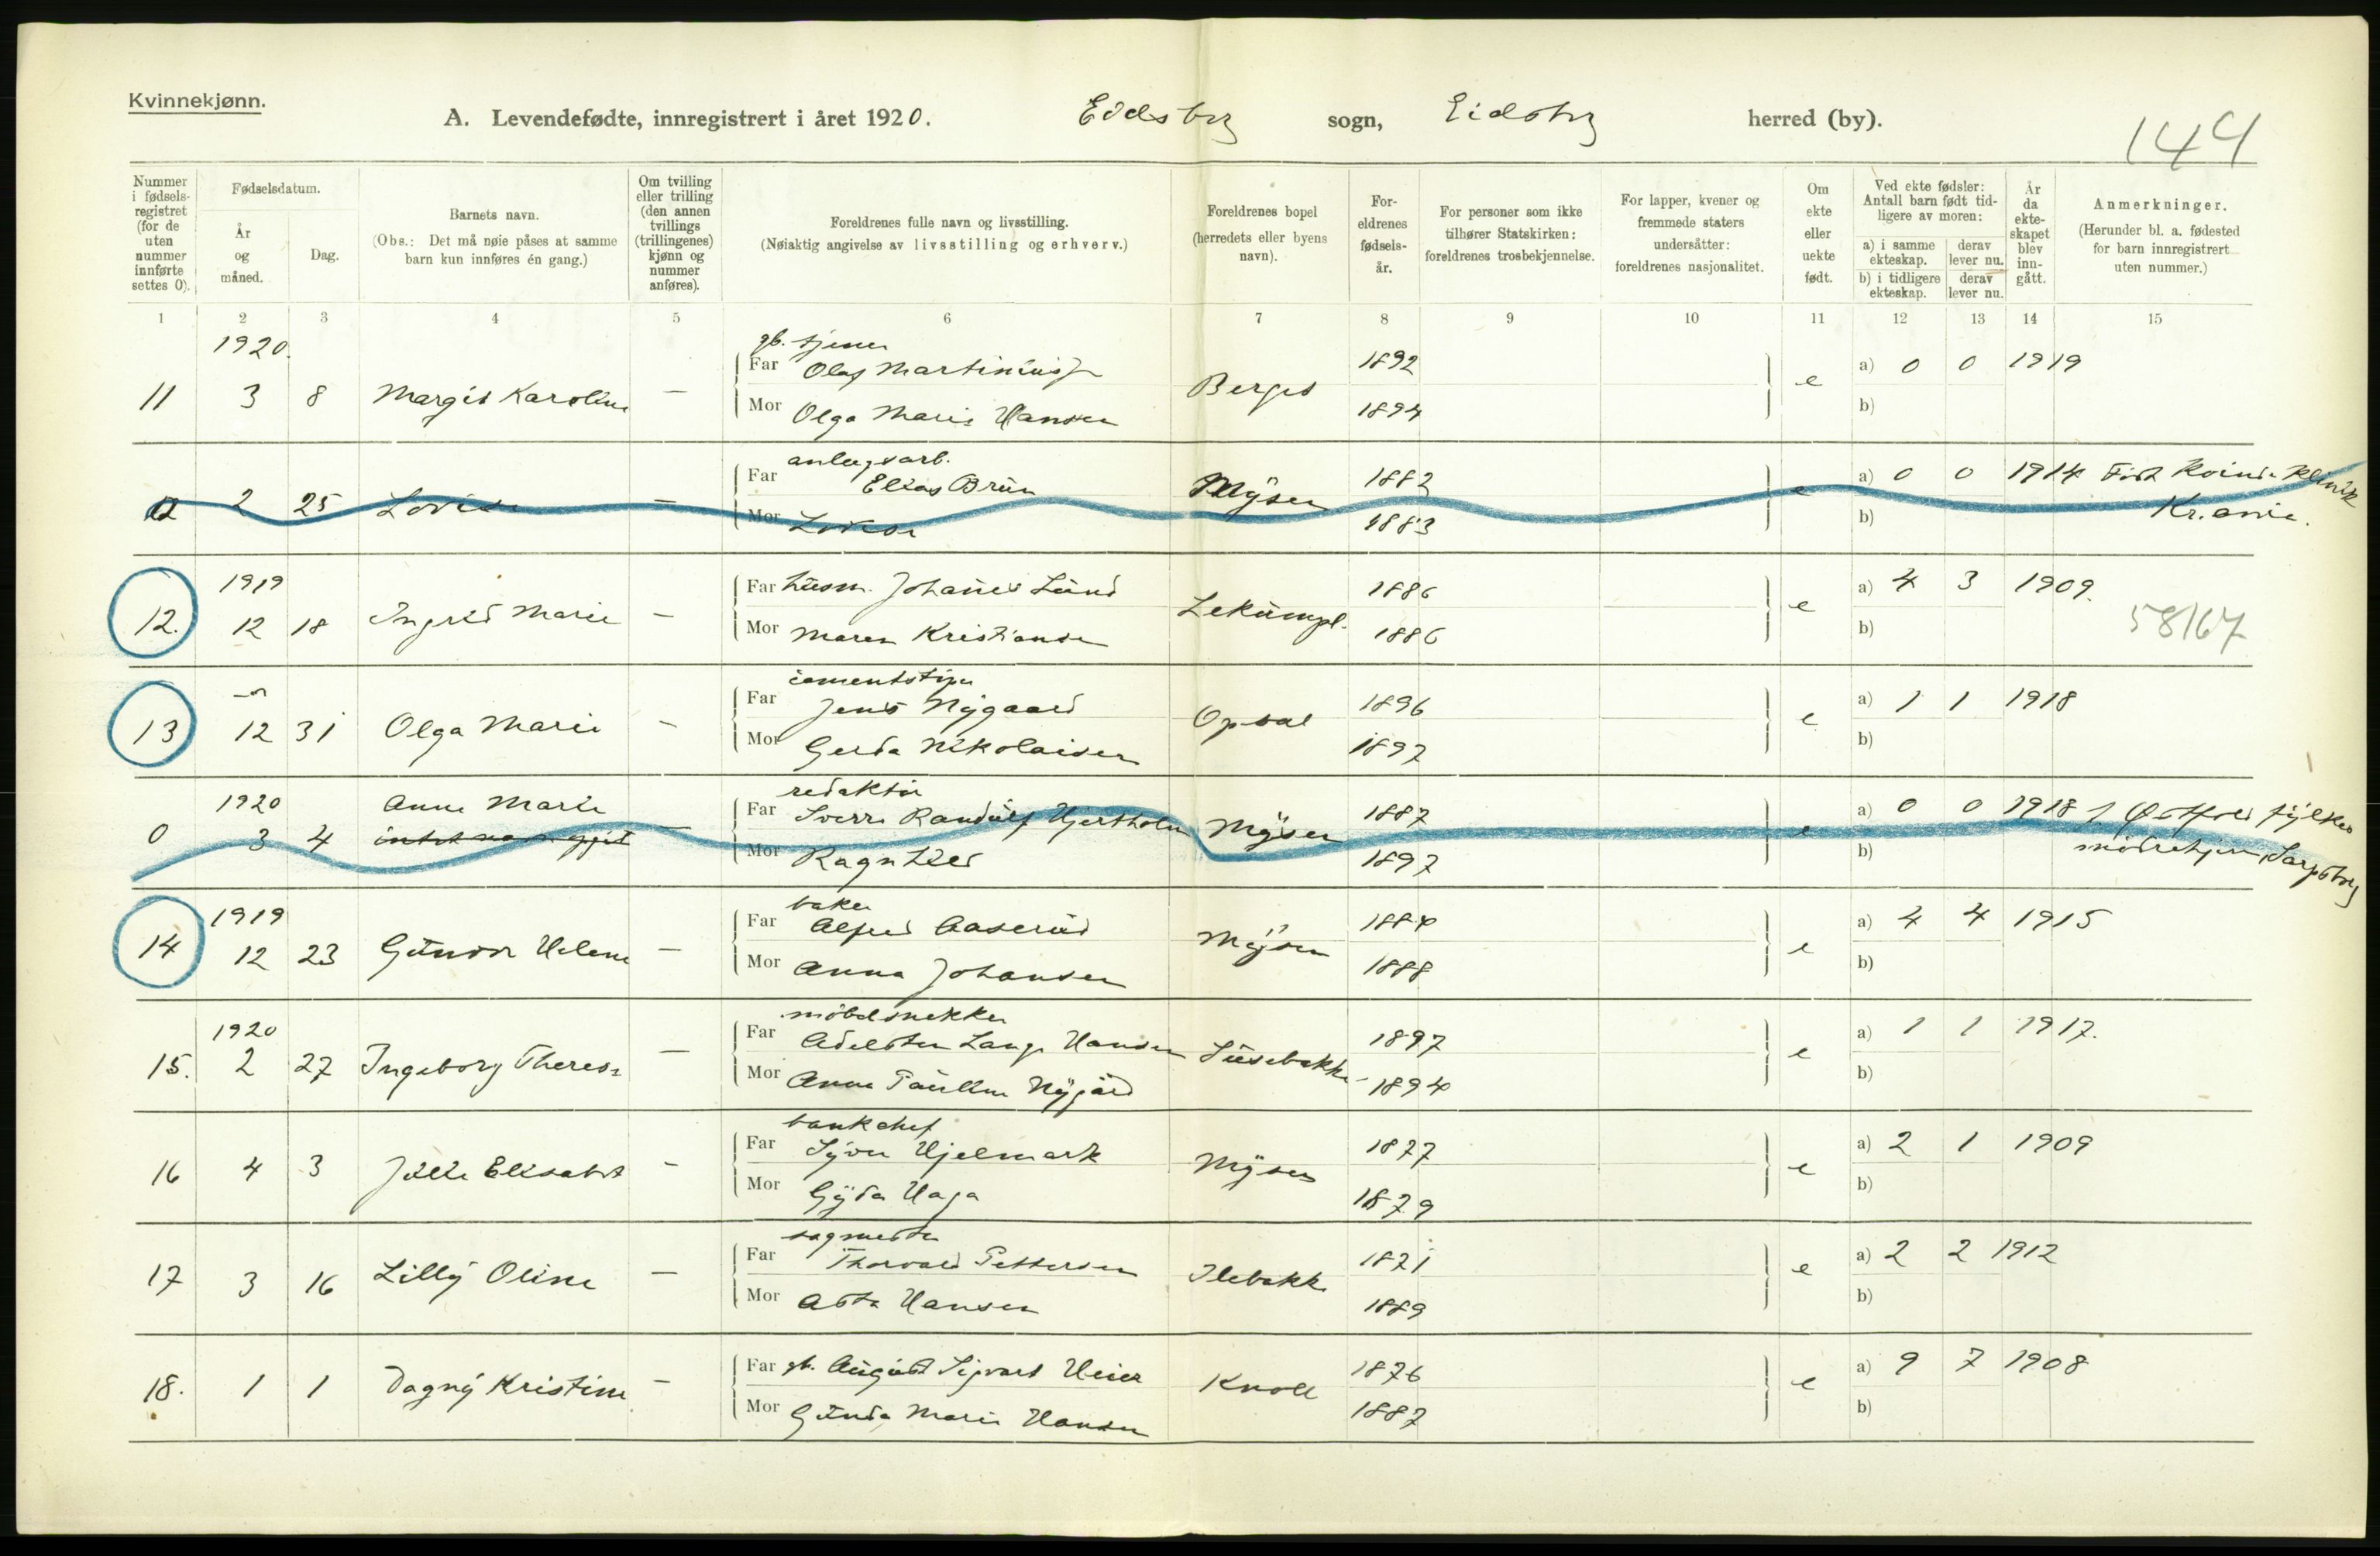 Kvinnekjønn.
A. Levendefødte, innregistrert i året 1920. Eidsberg sogn, Eidsberg herred (by).
144
Nummer i fødsels-registret (for de uten nummer innførte settes 0).
Fødselsdatum.
År og måned.
Dag.
Barnets navn.
(Obs.: Det må nøie påses at samme barn kun innføres én gang.)
Om tvilling eller trilling (den annen tvillings (trillingenes) kjønn og nummer anføres).
Foreldrenes fulle navn og livsstilling.
(Nøiaktig angivelse av livsstilling og erhverv.)
Foreldrenes bopel (herredets eller byens navn).
For-eldrenes fødsels-år.
For personer som ikke tilhører Statskirken: foreldrenes trosbekjennelse.
For lapper, kvener og fremmede staters undersåtter: foreldrenes nasjonalitet.
Om ekte eller uekte født.
Ved ekte fødsler: Antall barn født tid-ligere av moren:
a) i samme ekteskap. derav lever nu.
b) i tidligere ekteskap. derav lever nu.
År da ekte-skapet blev inn-gått.
Anmerkninger.
(Herunder bl. a. fødested for barn innregistrert uten nummer.)
1 2 3 4 5 6 7 8 9 10 11 12 13 14 15
1920. gb. tjener
Far Olaf Martinius 1892 a) 0 0 1919
11 3 8 Margit Karoline — Berget e
Mor Olga Marie Hansen 1894 b)
anlegsarb.
Far Elias Brun 1882 a) 0 0 1914 Født Kvinde Klinik
2 25 Lovise — Mysen e Kr.ania.
Mor Lovise 1883 b)
1919 Far husm. Johanes Lund 1886 a) 4 3 1909.
12. 12 18 Ingrid Marie — Lekumpl. e 58/67
Mor Maren Kristiansen 1886 b)
cementstøper
Far Jens Nygaard 1896 a) 1 1 1918
13 12 31 Olga Marie — Opsal e
Mor Gerda Nikolaisen 1897 b)
1920 Anne Marie redaktør
Far Sverre Randulf Hjertholm 1887 a) 0 0 1918 f. Østfold fylkes
0 3 4 intet navn gjit — Mysen e mødrehjem, Sarpsborg
Mor Ragnhild 1897 b)
1919 baker
Far Alfred Aaserud 1884 a) 4 4 1915
14 12 23 Gunvor Helene — Mysen e
Mor Anna Johansen 1888 b)
1920 möbelsnekker
Far Adelsten Lange Hansen 1897 a) 1 1 1917.
15. 2 27 Ingeborg Therese — Susebakke e
Mor Anna Pauline Nygård 1894 b)
bankchef
Far Syver Hjelmark 1877 a) 2 1 1909
16 4 3 Julie Elisabet — Mysen e
Mor Gyda Haga 1879 b)
sagmester
Far Thorvald Pettersen 1871 a) 2 2 1912
17 3 16 Lilly Oline — Ilebakk e
Mor Asta Hansen 1889 b)
Far gb. August Sigvart Heier 1876 a) 9 7 1908
18. 1 1 Dagny Kristine — Knoll e
Mor Gunda Marie Hansen 1887 b)